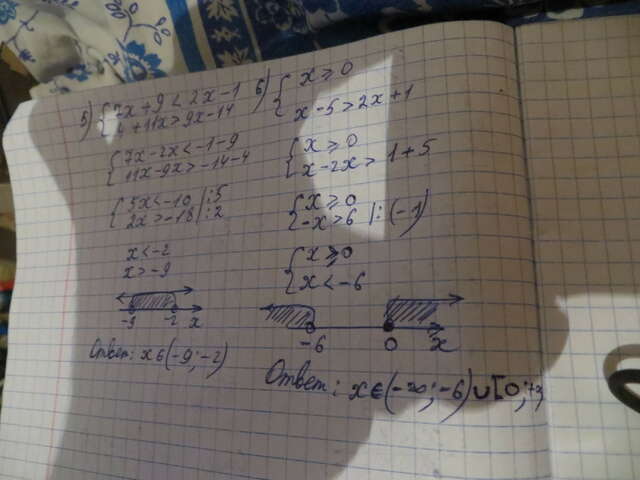 5) { 7x + 9 < 2x - 1
4 + 11x > 9x - 14
{ 7x - 2x < -1 - 9
11x - 9x > -14 - 4
{ 5x < -10 | :5
2x > -18 | :2
x < -2
x > -9
-9 -2 x
Ответ: x ∈ (-9; -2)
6) { x ⩾ 0
x - 5 > 2x + 1
{ x ⩾ 0
x - 2x > 1 + 5
{ x ⩾ 0
-x > 6 | : (-1)
{ x ⩾ 0
x < -6
-6 0 x
Ответ: x ∈ (-∞; -6) ∪ [0;